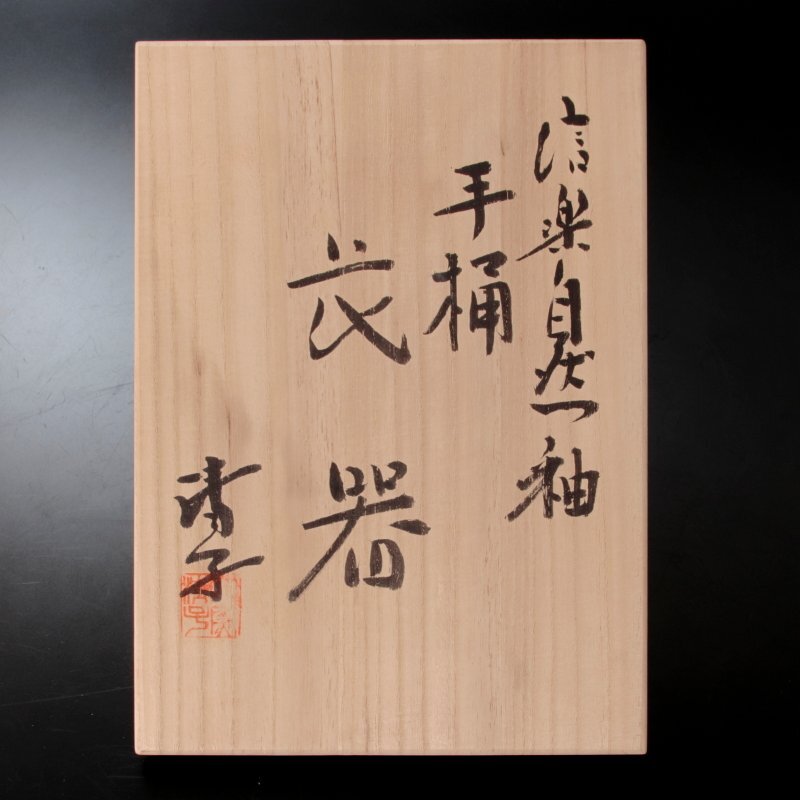 信楽自然釉
手桶
花器
清子